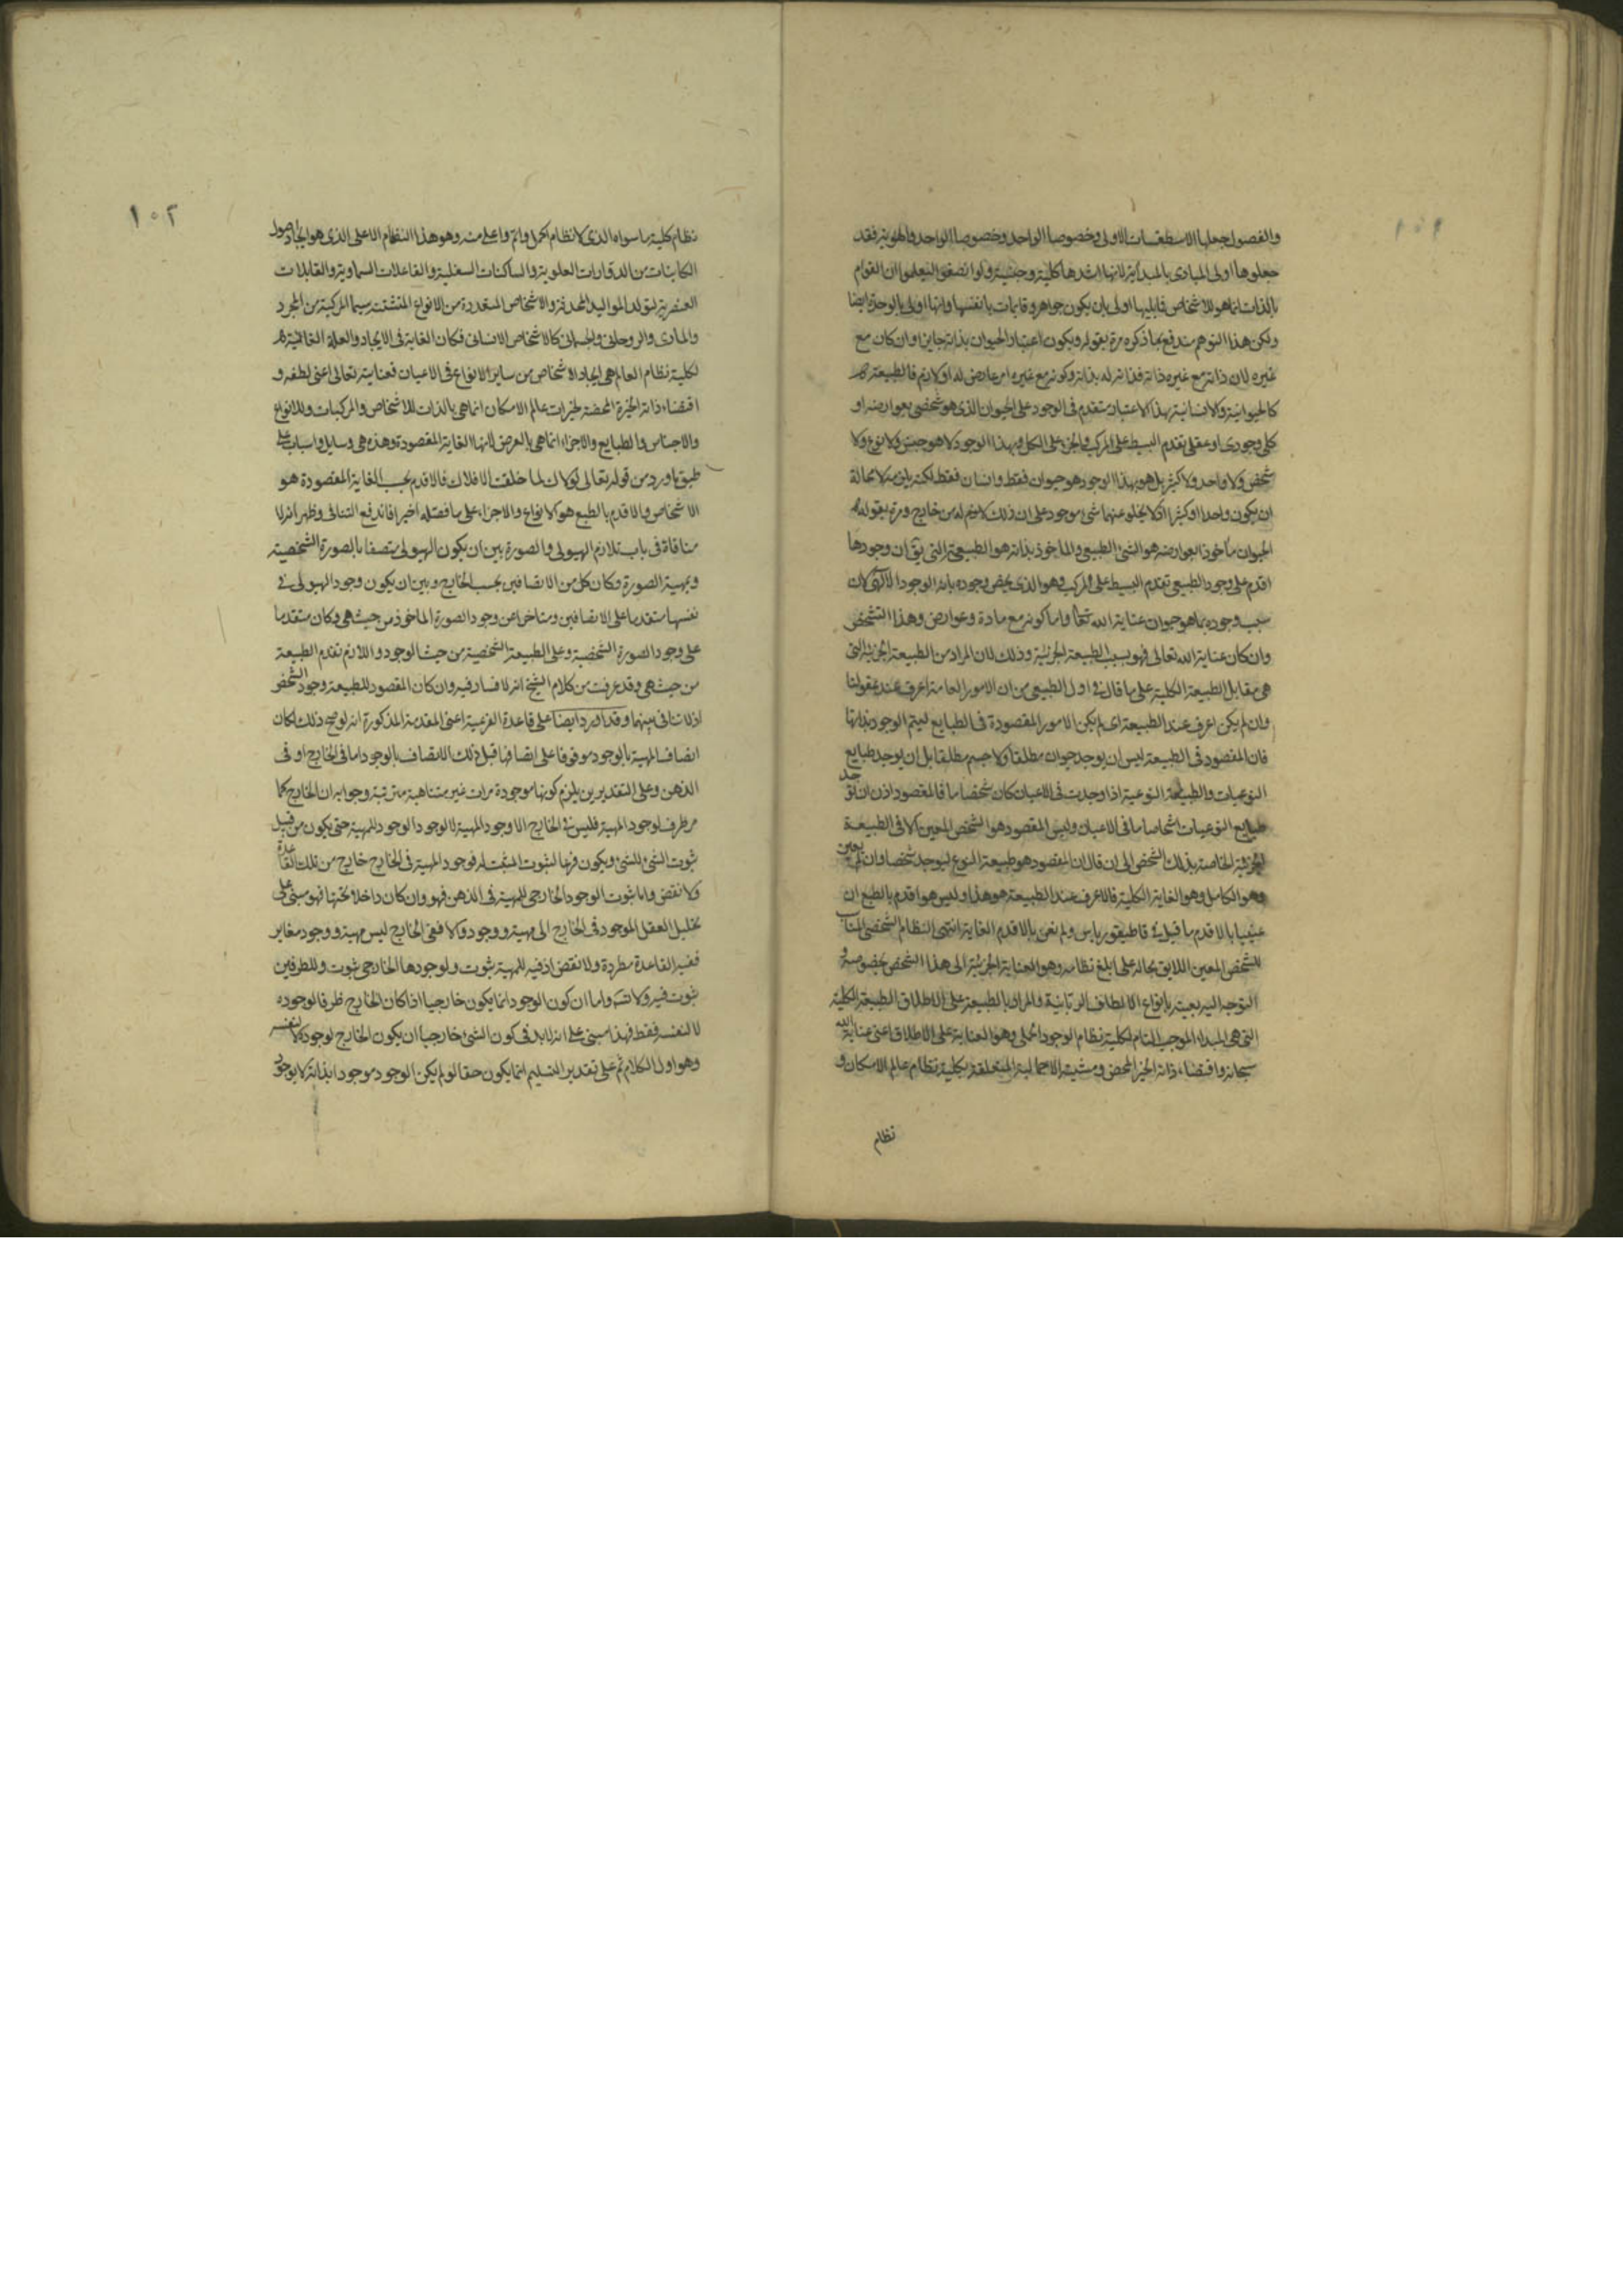 ١٠١
والفصول جعلها الاسطقسات الاولى وخصوصا الواحد وخصوصا الواحد والهوية فقد
جعلوها اولى المبادى بالمبدئية لانها اشدها كلية وجنسية ولو انصفوا لعلموا ان القوام
بالذات انما هو للاشخاص فما يليها اولى بان يكون جواهر وقايمات بانفسها وانها اولى بالوحدة ايضا
ولكن هذا التوهم مندفع بما ذكره مرة بقوله ويكون اعتبار الحيوان بذاته جايزا وان كان مع
غيره لان ذاته مع غيره ذاته فذاته له بذاته وكونه مع غيره امر عارض له او لازم فالطبيعة
كالحيوانية والانسانية بهذا الاعتبار متقدم فى الوجود على الحيوان الذى هو شخصى بعوارضه او
كلى وجودى او عقلى تقدم البسيط على المركب والجزء على الكل وبهذا الوجود لا هو جنس ولا نوع ولا
شخص ولا واحد ولا كثير بل هو بهذا الوجود هو حيوان فقط وانسان فقط لكنه يلزمه لا محالة
ان يكون واحدا او كثيرا اذ لا يخلو عنهما شىء موجود على ان ذلك لازم له من خارج ومرة بقوله
الحيوان مأخوذا بعوارضه هو الشىء الطبيعى والماخوذ بذاته هو الطبيعة التى يق ان وجودها
اقدم على وجود الطبيعى تقدم البسيط على المركب وهو الذى يخص وجوده بانه الوجود الالهى لان
سبب وجوده بما هو حيوان عناية الله تعالى واما كونه مع مادة وعوارض وهذا الشخص
وان كان عناية الله تعالى فهو بسبب الطبيعة الجزئية وذلك لان المراد من الطبيعة الجزئية التى
هى مقابل الطبيعة الكلية على ما قال فى اول الطبيعى من ان الامور العامة اعرف عند عقولنا
وان لم يكن اعرف عند الطبيعة اى لم يكن الامور المقصودة فى الطبايع ليتم الوجود بذاتها
فان المقصود فى الطبيعة ليس ان يوجد حيوان مطلقا ولا جسم مطلقا بل ان يوجد طبايع
النوعيات والطبيعة النوعية اذا وجدت فى الاعيان كان شخصا ما فالمقصود اذن ان توجد
طبايع النوعيات اشخاصا ما فى الاعيان وليس المقصود هو الشخص المعين الا فى الطبيعة
الجزئية الخاصة بذلك الشخص الى ان قال ان المقصود هو طبيعة النوع ليوجد شخصا وان لم يعين
وهو الكامل وهو الغاية الكلية فالاعرف عند الطبيعة هو هذا وليس هو اقدم بالطبع ان
عنينا بالاقدم ما قيل فى قاطيغورياس ولم نعن بالاقدم الغاية انتهى النظام الشخصى المناسب
للشخص المعين اللايق بحاله على ابلغ نظامه وهو العناية الجزئية الى هذا الشخص بخصوصه و
التوجه اليه بعينه بانواع الالطاف الربانية والمراد بالطبيعة على الاطلاق الطبيعة الكلية
التى هى المبداء الموجب التام لكلية نظام الوجود الجملى وهو العناية على الاطلاق اعنى عناية الله
سبحانه واقتضاء ذاته الخير المحض ومشيته الاجمالية المتعلقة بكلية نظام عالم الامكان و
نظام
١٠٢
نظام كلية ما سواه الذى لا نظام اكمل واتم واعلى منه وهو هذا النظام الاعلى الذى هو ايجاد اصول
الكاينات من الدوارات العلوية والساكنات السفلية والفاعلات السماوية والقابلات
العنصرية لتولد المواليد المحدثة والاشخاص المتعددة من الانواع المتشتتة سيما المركبة من المجرد
والمادى والروحانى والجسمانى كالاشخاص الانسانى فكان الغاية فى الايجاد والعلة الغائية
لكلية نظام العالم هى ايجاد الاشخاص من ساير الانواع فى الاعيان فعنايته تعالى اعنى لطفه و
اقتضاء ذاته الخيرة المحضة لخيرات عالم الامكان انما هى بالذات للاشخاص والمركبات وللانواع
والاجناس والطبايع والاجزاء انما هى بالعرض لانها الغاية المقصودة وهذه هى وسايل واسباب على
طبق ما ورد من قوله تعالى لولاك لما خلقت الافلاك فالاقدم بحسب الغاية المقصودة هو
الاشخاص والاقدم بالطبع هو الانواع والاجزاء على ما فصله اخيرا فاندفع التنافى وظهر انه لا
منافاة فى باب تلازم الهيولى والصورة بين ان يكون الهيولى متصفا بالصورة الشخصية
وبمهية الصورة وكان كل من الاتصافين بحسب الخارج وبين ان يكون وجود الهيولى فى
نفسها متقدما على الاتصافين ومتاخرا عن وجود الصورة الماخوذ من حيث هى وكان متقدما
على وجود الصورة الشخصية وعلى الطبيعة الشخصية من حيث الوجود واللازم تقدم الطبيعة
من حيث هى وقد عرفت من كلام الشيخ انه لا فساد فيه وان كان المقصود للطبيعة وجود الشخص
اذ لا تنافى بينهما وقد اورد ايضا على قاعدة الفرعية اعنى المقدمة المذكورة انه لو صح ذلك لكان
اتصاف المهية بالوجود موقوفا على اتصافها قبل ذلك الاتصاف بالوجود اما فى الخارج او فى
الذهن وعلى التقديرين يلزم كونها موجودة مرات غير متناهية مترتبة وجوابه ان الخارج كما
مر ظرف لوجود المهية فليس فى الخارج الا وجود المهية لا لوجود الوجود للمهية حتى يكون من قبيل
ثبوت الشىء للشىء ويكون فرعا لثبوت المثبت له فوجود المهية فى الخارج خارج من تلك القاعدة
ولا نقض واما ثبوت الوجود الخارجى للمهية فى الذهن فهو وان كان داخلا تحتها فهو مبنى على
تحليل العقل الموجود فى الخارج الى مهية ووجود والا ففى الخارج ليس مهية ووجود مغاير
ففيه القاعدة مطردة ولا نقض اذ فيه للمهية ثبوت ولوجودها الخارجى ثبوت وللطرفين
ثبوت فيه ولا واما ان كون الوجود انما يكون خارجيا اذا كان الخارج ظرفا لوجوده
لا لنفسه فقط فهذا مبنى على انه لا بد فى كون الشىء خارجيا ان يكون الخارج لوجوده لا لنفسه
وهو اول الكلام ثم على تقدير التسليم انما يكون حقا لو لم يكن الوجود موجودا بذاته لا بوجود